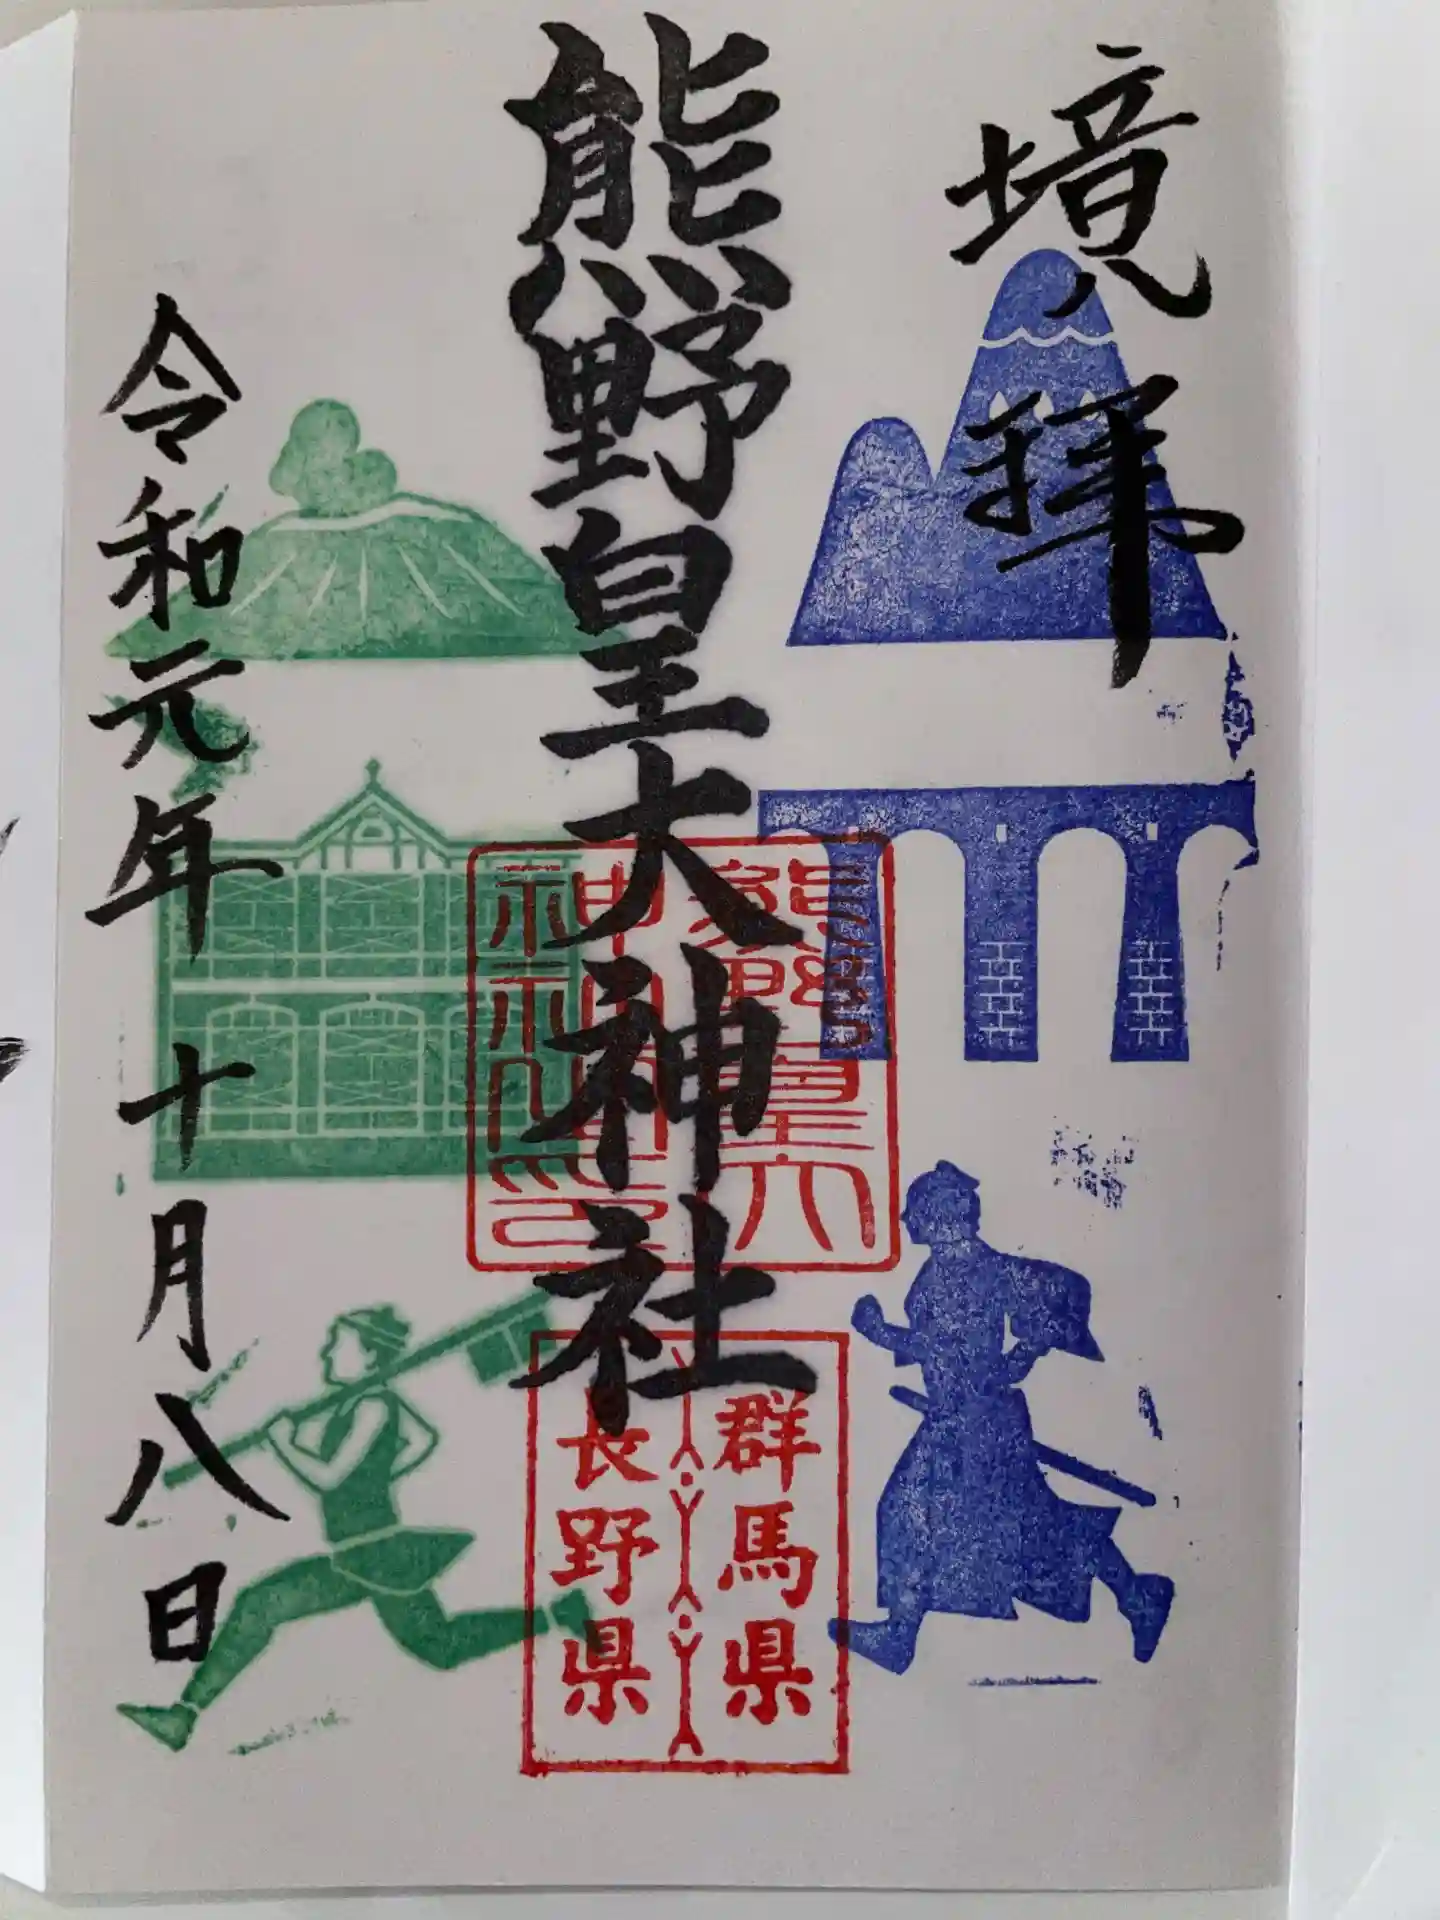 境拜
熊野皇大神社
熊野皇大
神社印
群馬県
長野県
令和元年十月八日